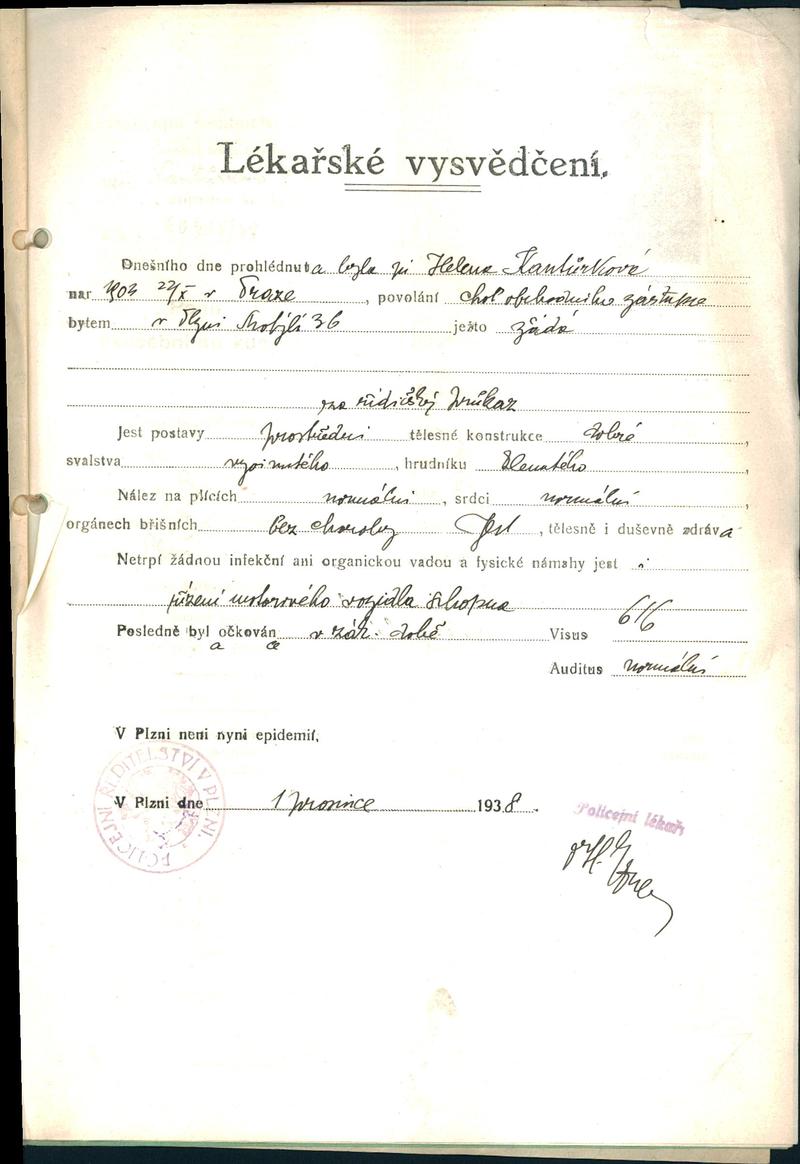 Lékařské vysvědčení.
Dnešního dne prohlédnuta byla pí Helena Kantůrková
nar 1904 22/X v Praze, povolání choť obchodního zástupce
bytem v Plzni 36 ježto žádá
za řidičský průkaz
Jest postavy prostřední tělesné konstrukce dobré,
svalstva vyvinutého, hrudníku klenutého
Nález na plících normální, srdci normální,
orgánech břišních bez choroby Jest, tělesně i duševně zdráva
Netrpí žádnou infekční ani organickou vadou a fysické námahy jest i
řízení motorového vozidla schopna
Posledně byl očkován v zák. době Visus 6/6
a a
Auditus normální
V Plzni není nyní epidemií.
V Plzni dne 1 prosince 1938.
POLICEJNÍ ŘEDITELSTVÍ V PLZNI.
Policejní lékař: